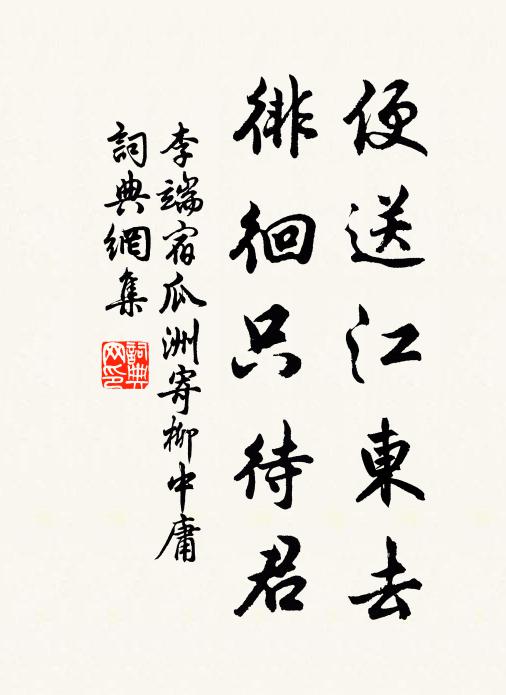 便送江東去
徘徊只待君
李端宿瓜洲寄柳中庸
詞典網集
詞典
网印